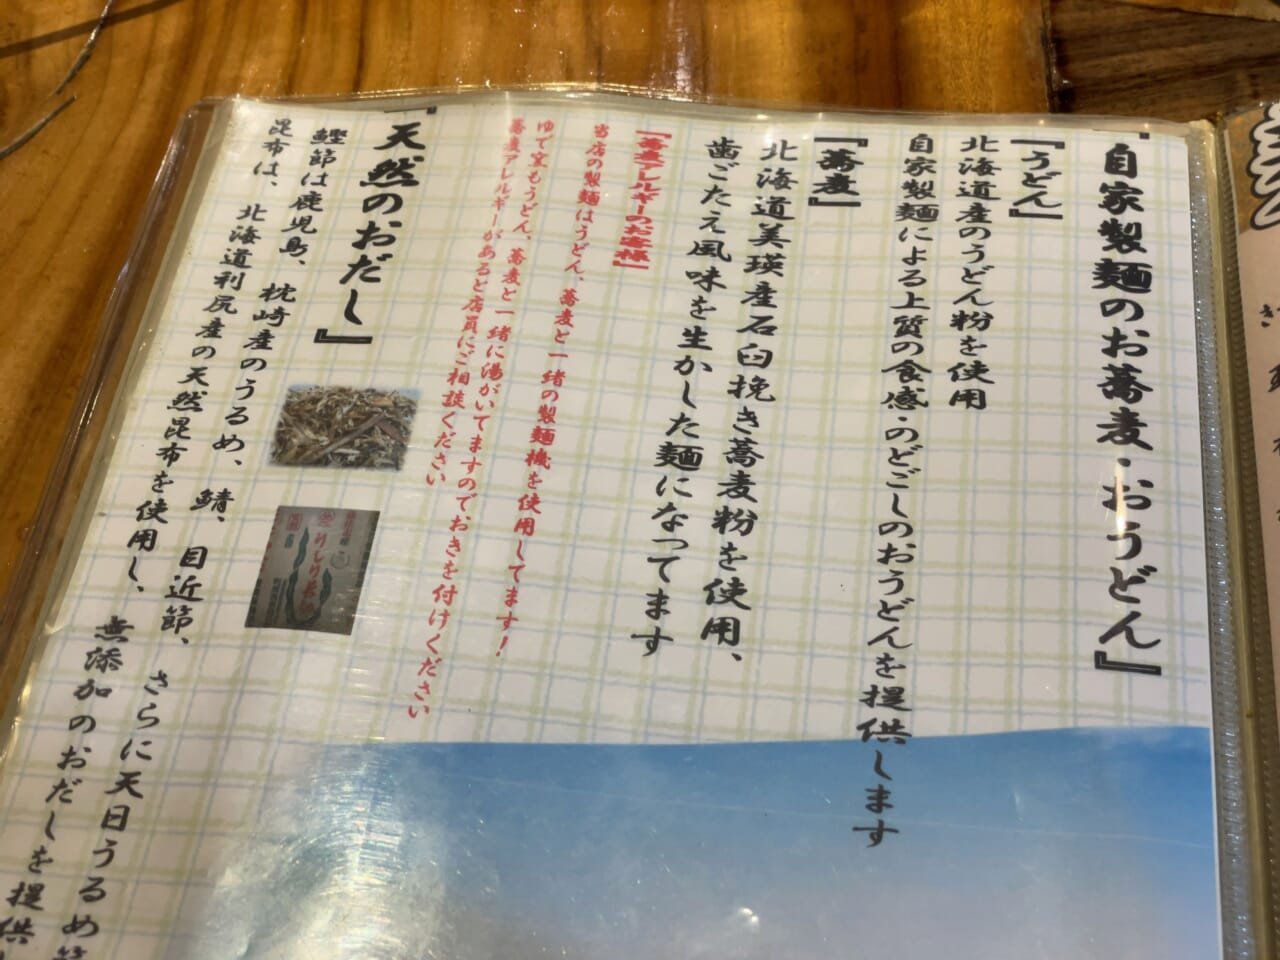 『自家製麺のお蕎麦・おうどん』
『うどん』
北海道産のうどん粉を使用
自家製麺による上質の食感・のどごしのおうどんを提供します
『蕎麦』
北海道美瑛産石臼挽き蕎麦粉を使用、
歯ごたえ風味を生かした麺になってます
『蕎麦アレルギーのお客様』
当店の製麺はうどん、蕎麦と一緒の製麺機を使用してます！
ゆで窯もうどん、蕎麦と一緒に湯がいてますのでおきを付けください
蕎麦アレルギーがあると店員にご相談ください
『天然のおだし』
鰹節は鹿児島、枕崎産のうるめ、鯖、目近節、さらに天日うるめ節
昆布は、北海道利尻産の天然昆布を使用し、無添加のおだしを提供し
りしり昆布